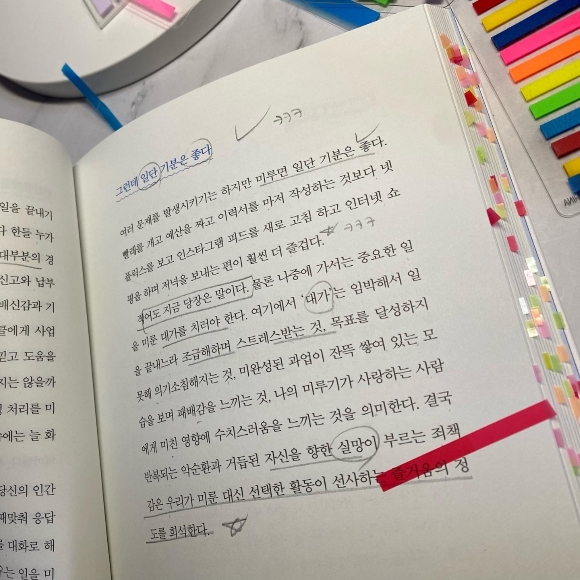 일을 끝내기
다 한들 누가
대부분의 경
신고와 납부
배신감과 기
에게 사업
믿고 도움을
지는 않을까
처리를 미
에는 늘 화
당신의 인간
깨맞춰 응답
대화로 해
우는 인을 미
ㅋㅋㅋ
그런데 일단 기분은 좋다
여러 문제를 발생시키기는 하지만 미루면 일단 기분은 좋다.
빨래를 개고 예산을 짜고 이력서를 마저 작성하는 것보다 넷
플릭스를 보고 인스타그램 피드를 새로 고침 하고 인터넷 쇼
핑을 하며 저녁을 보내는 편이 훨씬 더 즐겁다. ㅋㅋㅋ
적어도 지금 당장은 말이다. 물론 나중에 가서는 중요한 일
을 미룬 대가를 치러야 한다. 여기에서 '대가'는 임박해서 일
을 끝내느라 조급해하며 스트레스받는 것, 목표를 달성하지
못해 의기소침해지는 것, 미완성된 과업이 잔뜩 쌓여 있는 모
습을 보며 패배감을 느끼는 것, 나의 미루기가 사랑하는 사람
에게 미친 영향에 수치스러움을 느끼는 것을 의미한다. 결국
반복되는 악순환과 거듭된 자신을 향한 실망이 부르는 죄책
감은 우리가 미룬 대신 선택한 활동이 선사하는 즐거움의 정
도를 희석한다.